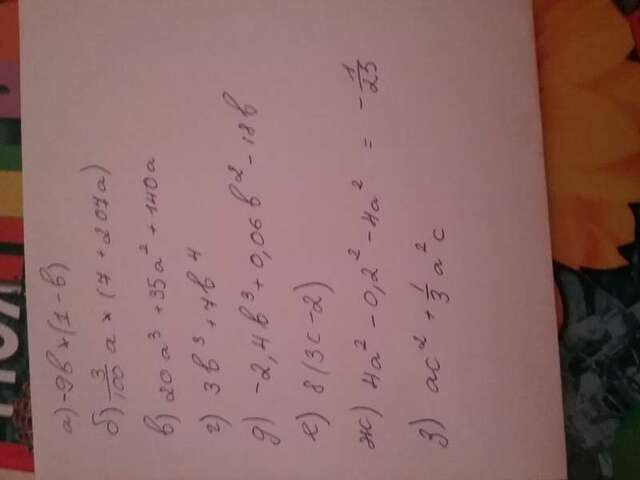 а) -9b × (1 - b)
б) 3/100 a × (7 + 207a)
в) 20a³ + 35a² + 140a
г) 3b³ + 7b⁴
д) -2,4b³ + 0,06b² - 18b
е) 8(3c - 2)
ж) 4a² - 0,2² - 4a² = - 1/25
з) ac² + 1/3 a²c